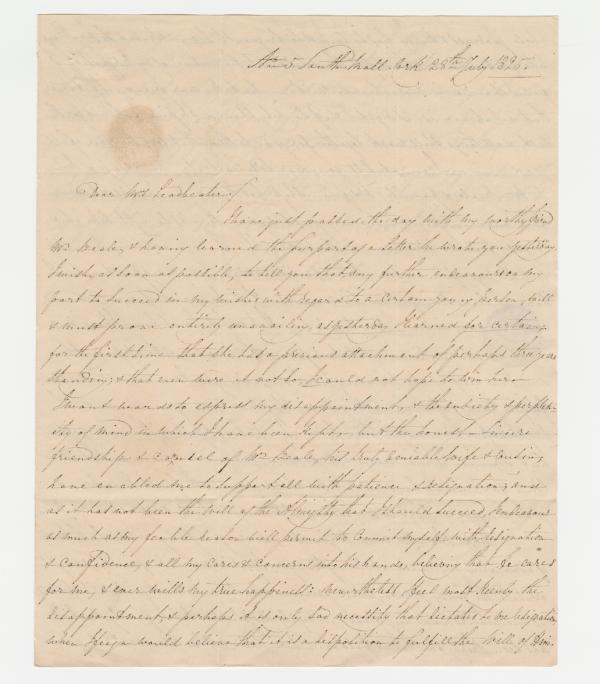 South Mall. Cork 28th July 1825.
Dear Mrs Leadbeater
I have just passed the day with my worthy friend
Mr Beale, & having learned the purport of a letter he wrote you yesterday
I wish as soon as possible, to tell you that any further endeavours on my
part to succeed in my wishes with regard to a certain young person, will
& must prove entirely unavailing, as yesterday I learned for certain,
for the first time that she has a previous attachment of perhaps three years
standing; & that even were it not so, I could not hope to win her
I want words to express my disappointment, & the anxiety & perplex-
ity of mind in which I have been kept, but the honest & sincere
friendship & counsel of Mr Beale, his truly amiable Wife & Cousin,
have enabled me to support all with patience & resignation; and
as it has not been the will of the Almighty that I should succeed, I endeavour
as much as my feeble reason will permit to commit myself with resignation
& confidence, & all my cares & concerns into his hands, believing that he "cares
for me, & ever wills my true happiness: nevertheless I feel most keenly the
disappointment, & perhaps it is only sad necessity that dictates to me resignation
when I feign would believe that it is a disposition to fulfill the Will of Him